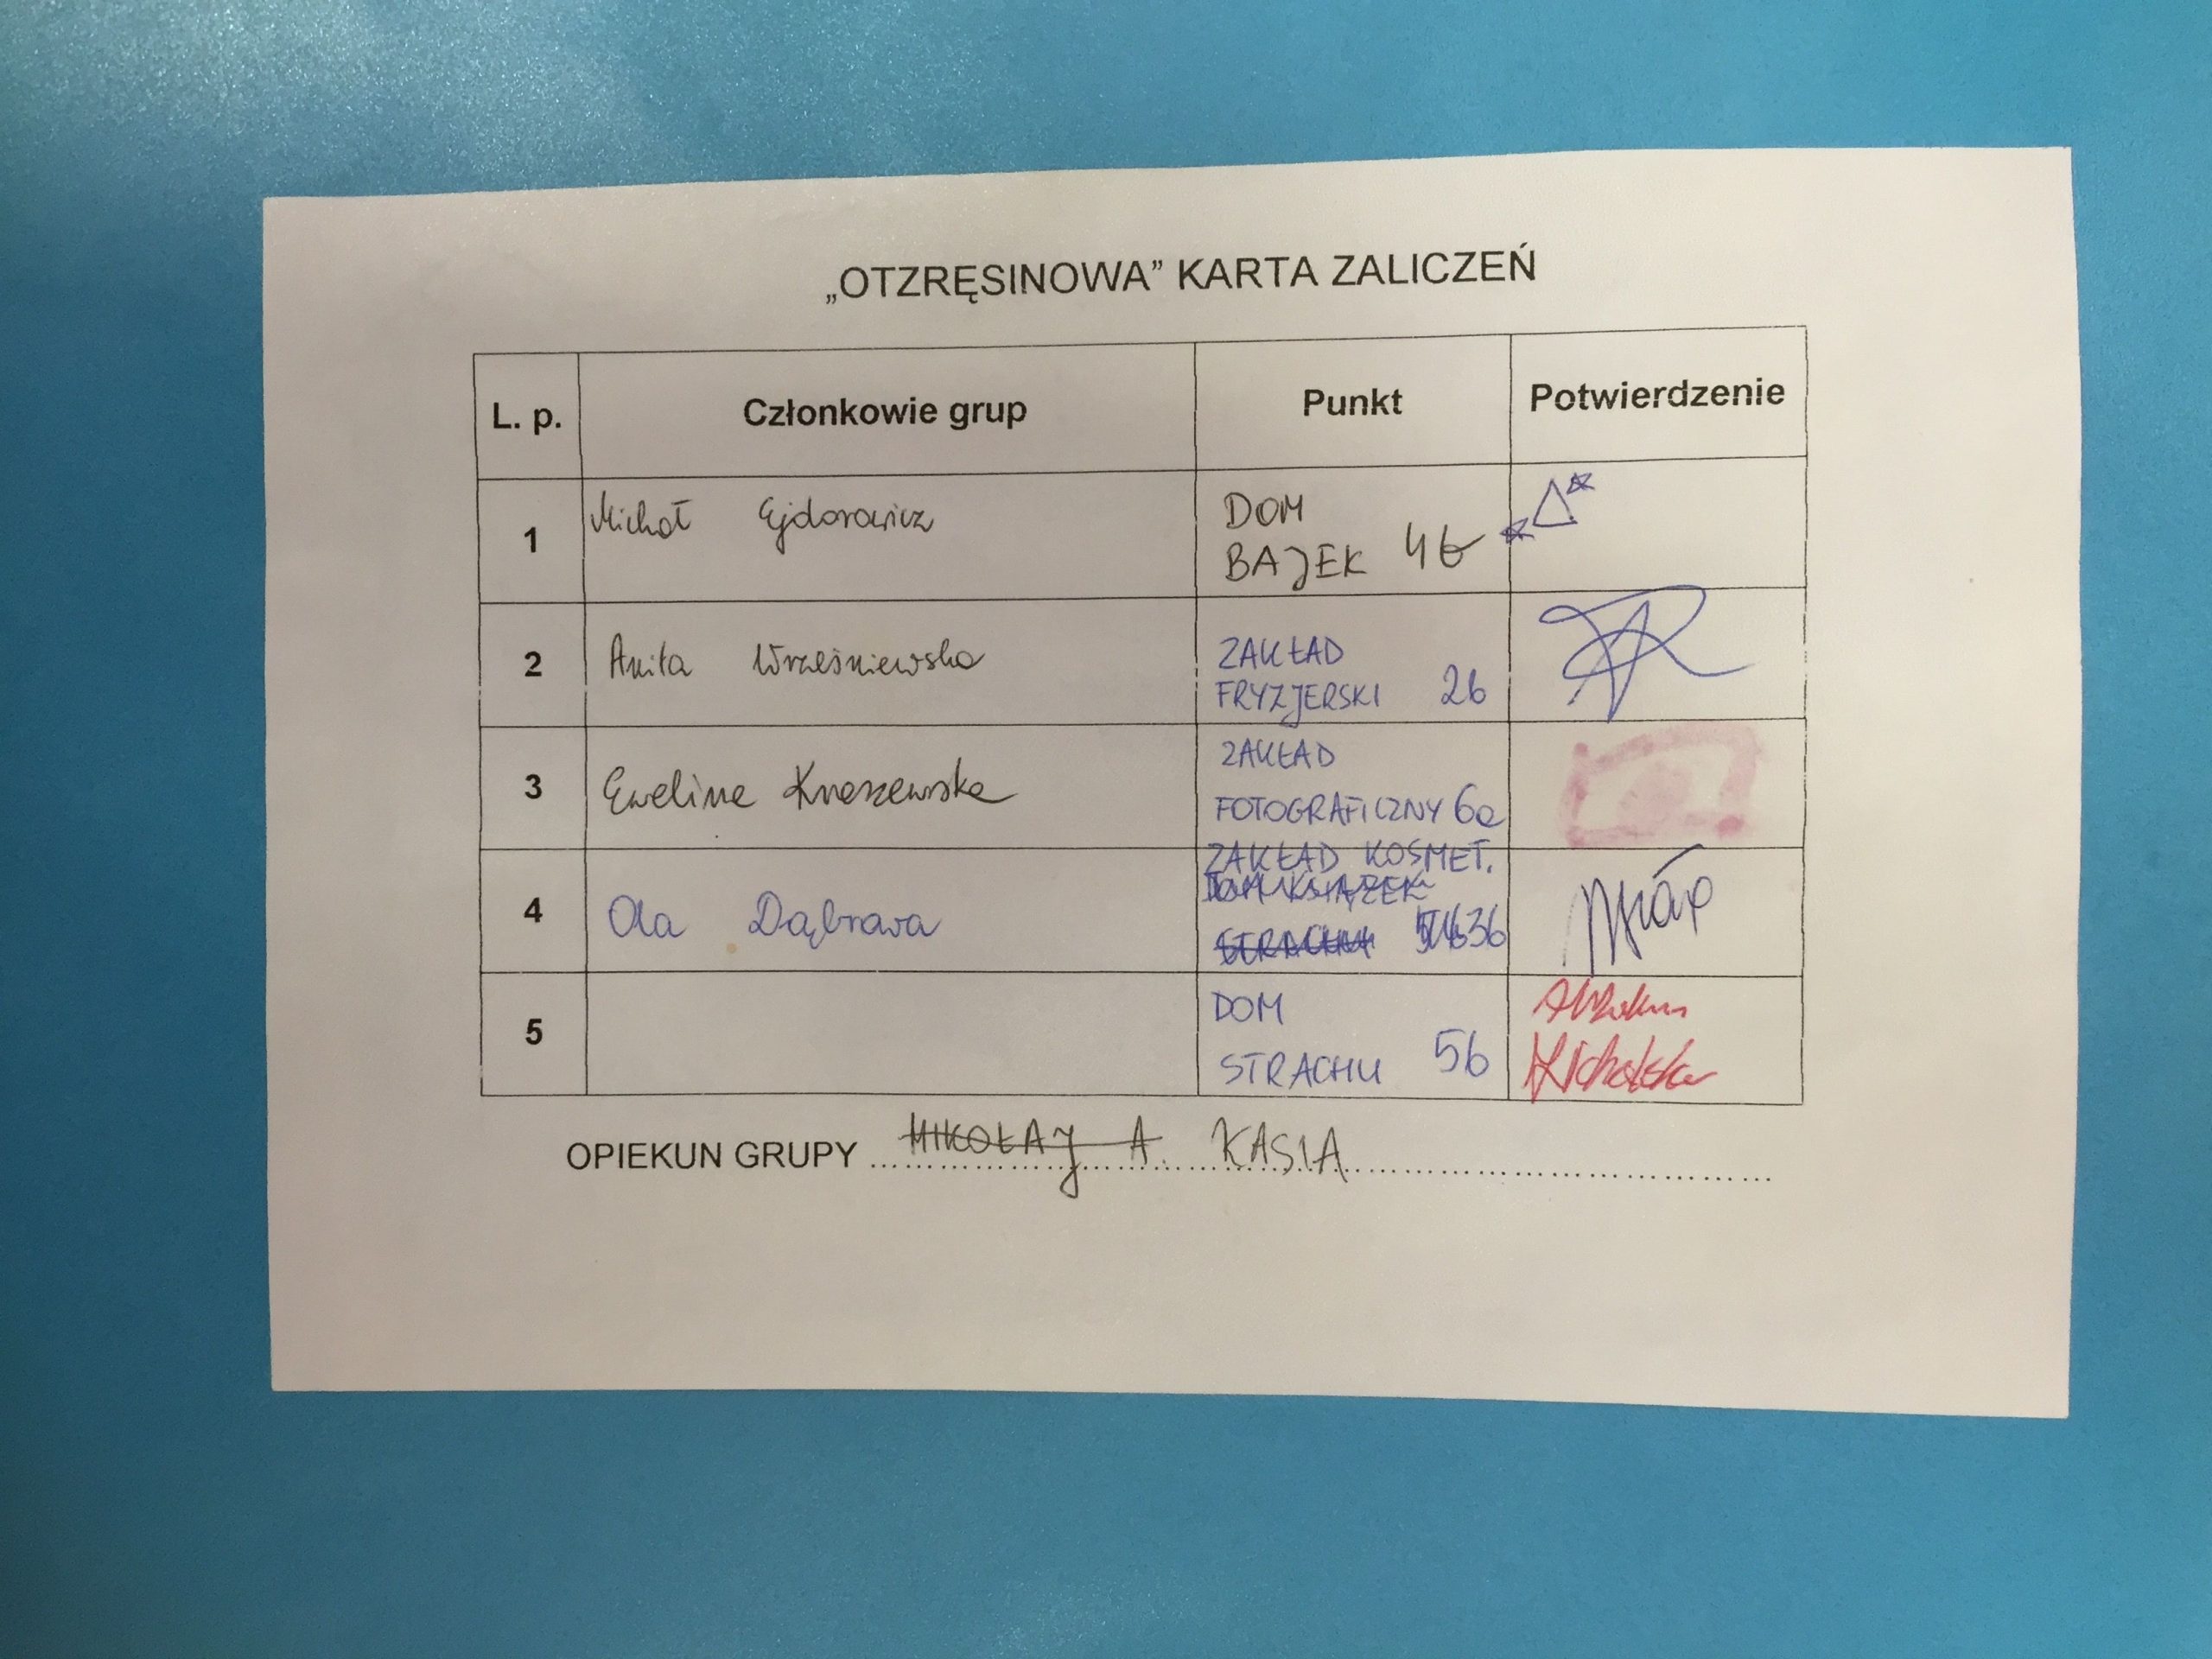 „OTZRĘSINOWA” KARTA ZALICZEŃ
L. p. Członkowie grup Punkt Potwierdzenie
1 Michał Ejdorowicz DOM
BAJEK 46
2 Anita Wrześniewska ZAKŁAD
FRYZJERSKI 26
3 Ewelina Kraszewska ZAKŁAD
FOTOGRAFICZNY 6a
4 Ola Dąbrowa ZAKŁAD KOSMET.
DOM KSIĄŻEK
STRACHU 36
5 DOM
STRACHU 56
OPIEKUN GRUPY MIKOŁAJ A. KASIA